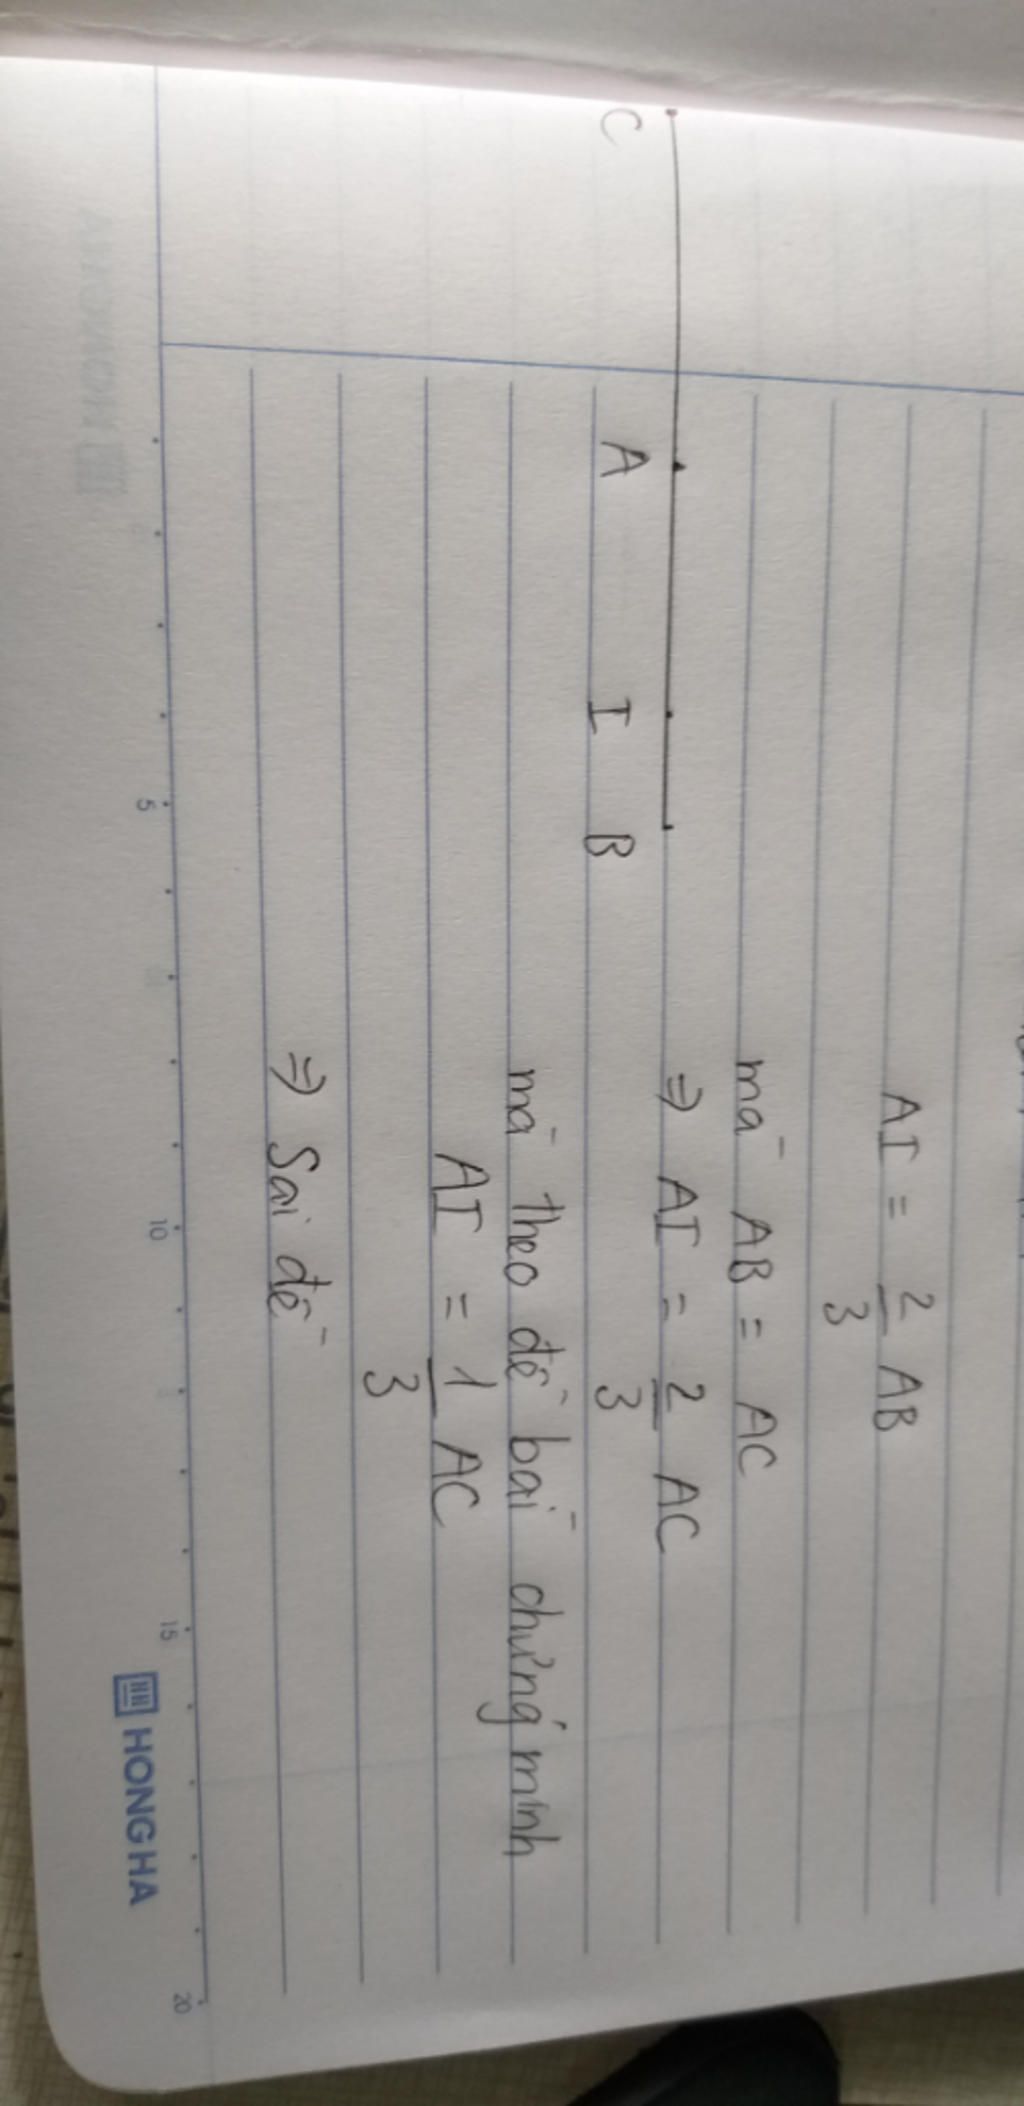 AI = 2/3 AB
mà AB = AC
⇒ AI = 2/3 AC
C A I B
mà theo đề bài chứng minh
AI = 1/3 AC
⇒ Sai đề
5 10 15 20
HONG HA